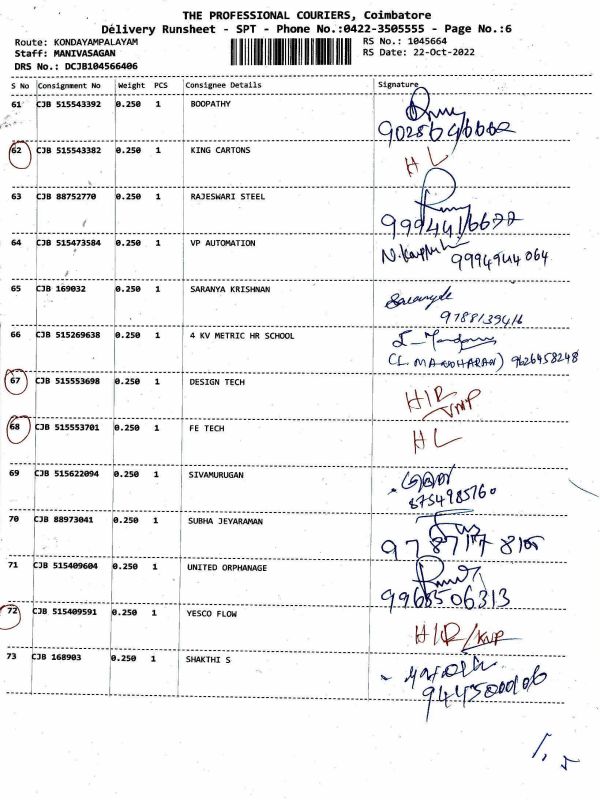 THE PROFESSIONAL COURIERS, Coimbatore
Delivery Runsheet - SPT - Phone No.:0422-3505555 - Page No.:6
Route: KONDAYAMPALAYAM RS No.: 1045664
Staff: MANIVASAGAN RS Date: 22-Oct-2022
DRS No.: DCJB104566406
S No Consignment No Weight PCS Consignee Details Signature
61 CJB 515543392 0.250 1 BOOPATHY
62 CJB 515543382 0.250 1 KING CARTONS HL
63 CJB 88752770 0.250 1 RAJESWARI STEEL
9994416677
64 CJB 515473584 0.250 1 VP AUTOMATION
9994944064
65 CJB 169032 0.250 1 SARANYA KRISHNAN
9788139416
66 CJB 515269638 0.250 1 4 KV METRIC HR SCHOOL
(L. MANOHARAN) 9626458248
67 CJB 515553698 0.250 1 DESIGN TECH H/R
68 CJB 515553701 0.250 1 FE TECH HL
69 CJB 515622094 0.250 1 SIVAMURUGAN
8754985760
70 CJB 88973041 0.250 1 SUBHA JEYARAMAN
71 CJB 515409604 0.250 1 UNITED ORPHANAGE
72 CJB 515409591 0.250 1 YESCO FLOW H/R/KNP
73 CJB 168903 0.250 1 SHAKTHI S